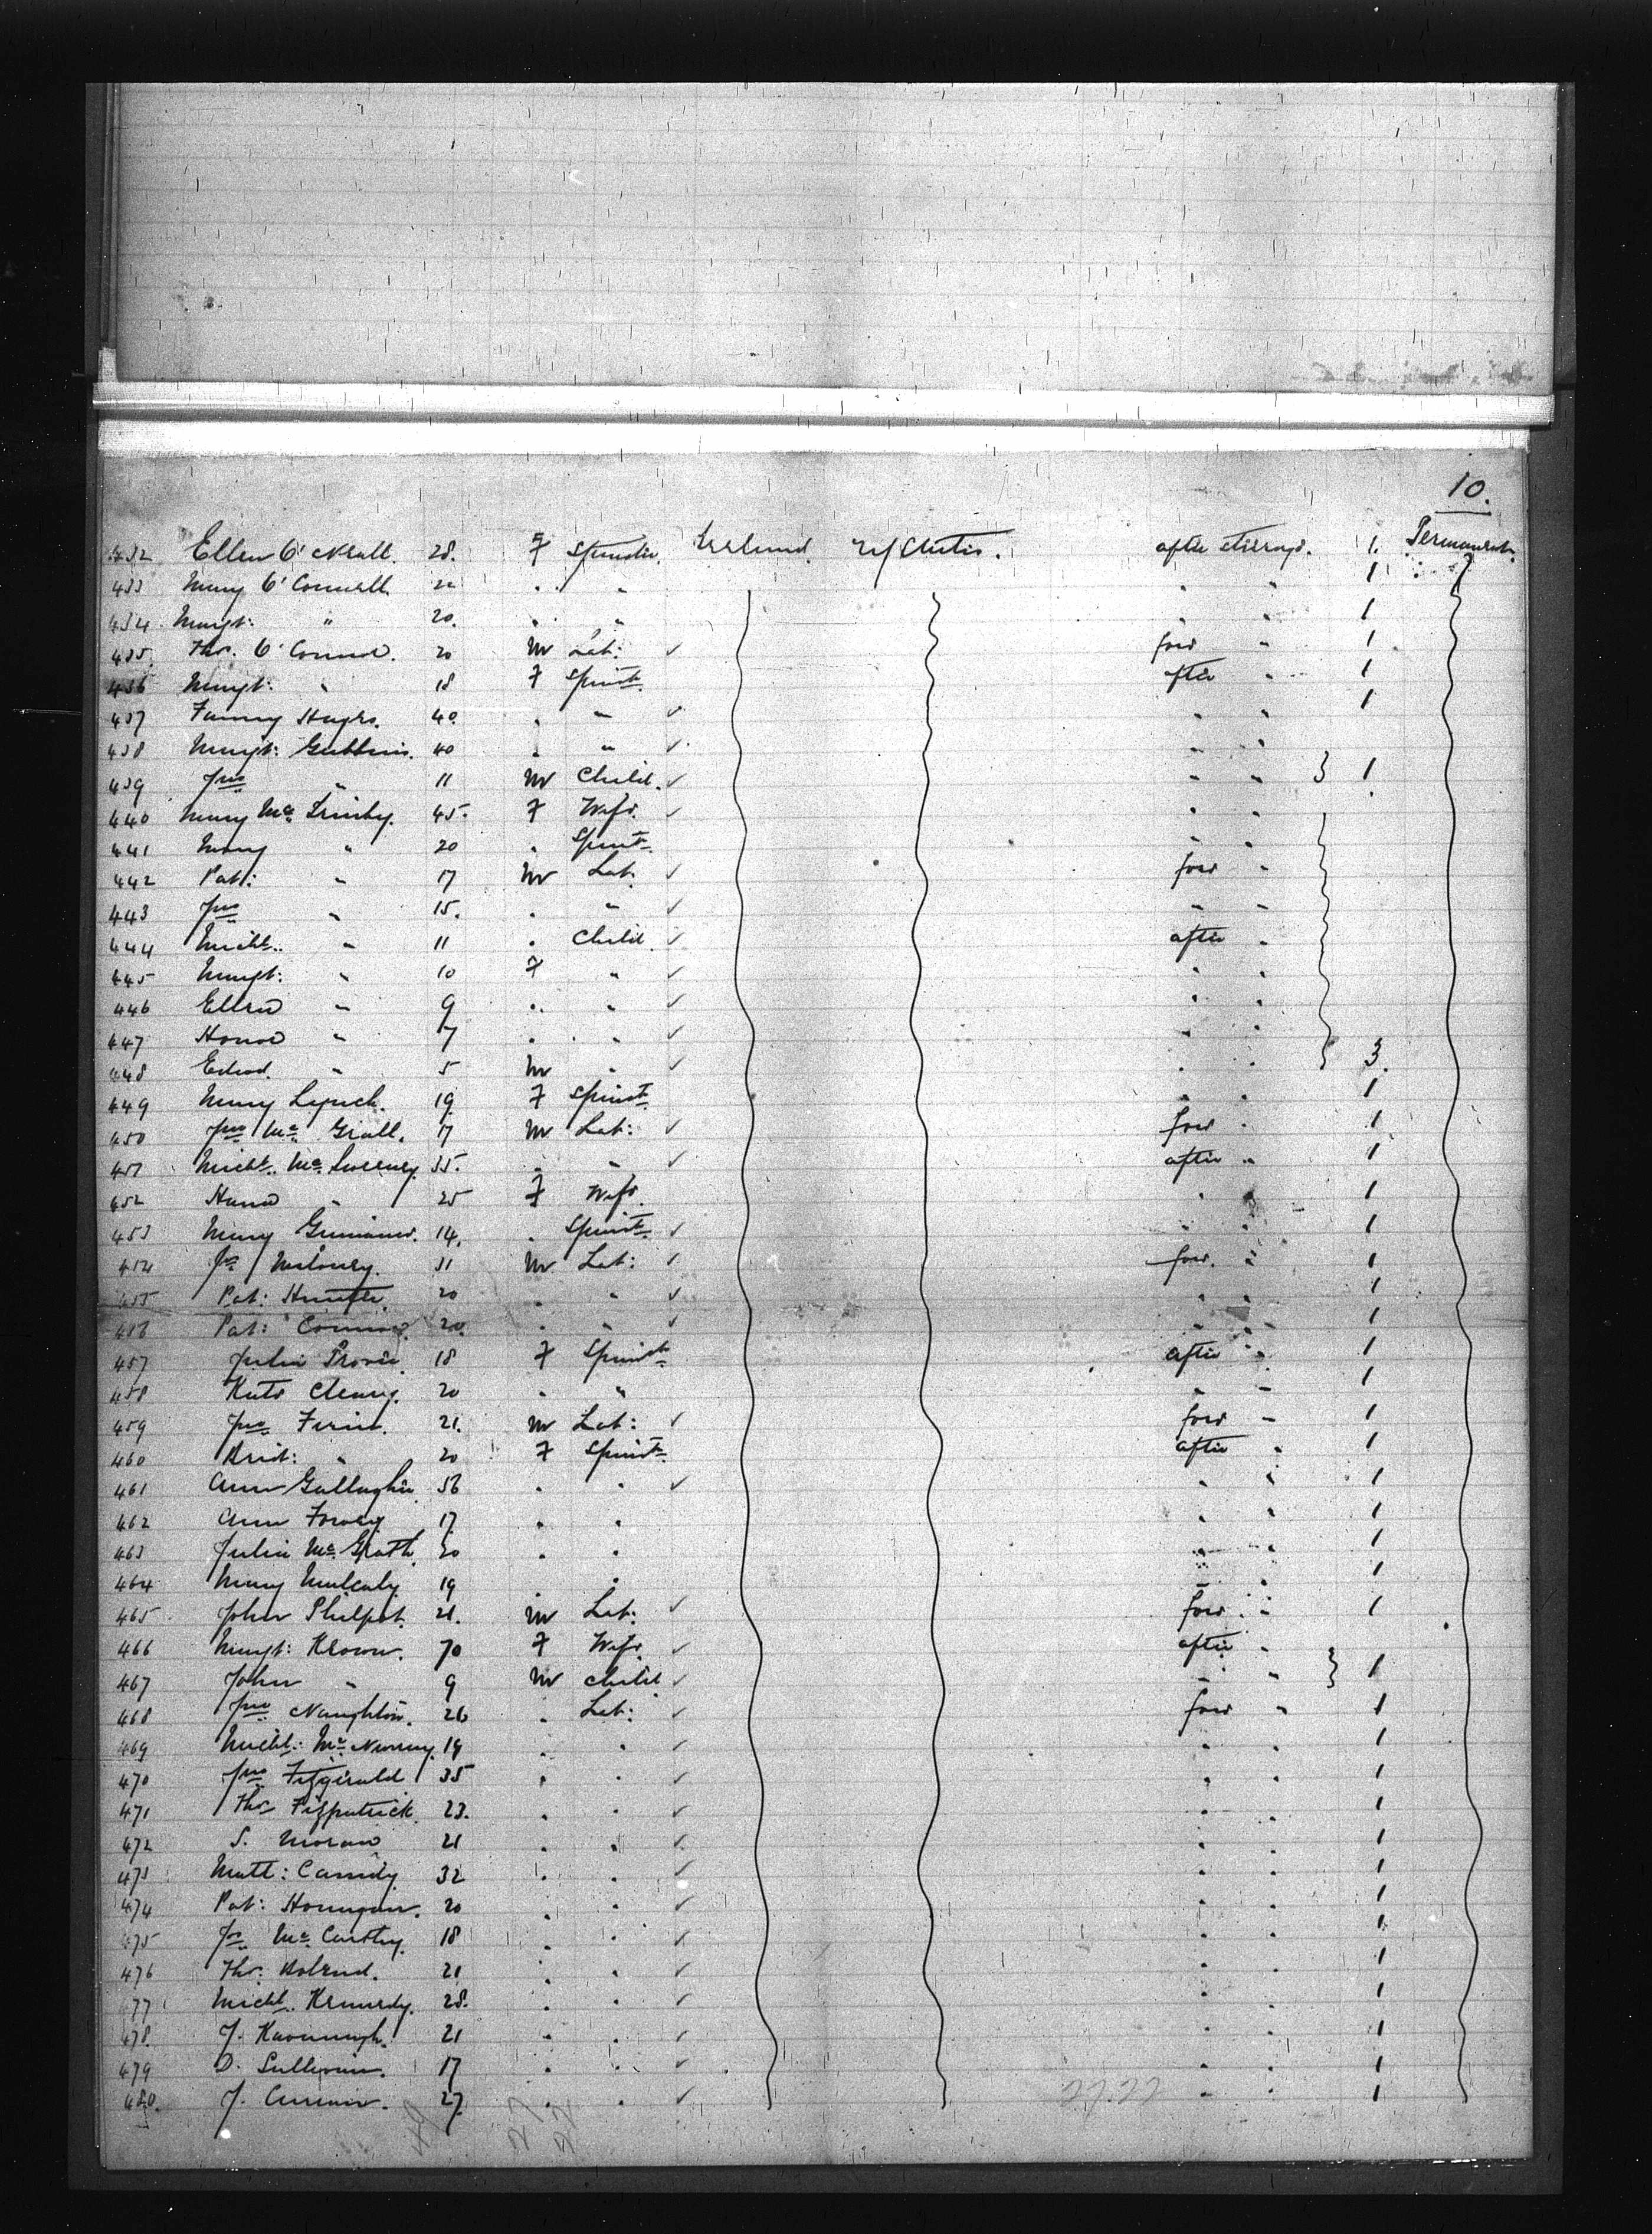 10.
432 Ellen O'Neall. 28. F Spinster. Ireland. U/States. after steerage. 1. Permanent.
433 Mary O'Connell. 22 . " " " 1
434 Margt: " 20. . " " " 1
435. Thos. O'Connor. 20 M Lab: ✓ for'd " 1
436 Margt: " 18 F Spinst. after " 1
437 Fanny Hughs. 40. . " ✓ " " 1
438 Margt: Gubbins. 40 . " ✓ " "
439 Jno " 11 M Child. ✓ " " } 1
440 Mary Mc 45. F Wife. ✓ " "
441 Mary " 20 . Spinst. " "
442 Pat: " 17 M Lab. ✓ for'd "
443 Jno " 15. . " ✓ " "
444 Michl. " 11 . Child. ✓ after "
445 Margt: " 10 F " ✓ " "
446 Ellen " 9 . " ✓ " "
447 Honor " 7 . " ✓ " "
448 Edwd. " 5 M " ✓ " " } 3.
449 Mary Lynch. 19 F Spinst. " " 1
450 Jno Mc Grall. 17 M Lab: ✓ for'd " 1
451 Michl. Mc Sweeney. 35. . " ✓ after " 1
452 Hana " 25 F Wife. " " 1
453 Mary 14. . Spinst. ✓ " " 1
454 Js Maloney. 31 M Lab: ✓ for'd. " 1
455 Pat: Hunter. 20 . " ✓ " " 1
456 Pat: Connor. 20. . " ✓ " " 1
457 Julia 18 F Spinst. after " 1
458 Kate Cleary. 20 . " " " 1
459 Jno 21. M Lab: ✓ for'd " 1
460 Brid: " 20 F Spinst. after " 1
461 Ann Gallagher 36 . . ✓ " " 1
462 Ann 17. . . " " 1
463 Julia Mc Grath. 20 . . " " 1
464 Mary Mulcahy 19 . . " " 1
465 John Philpot. 21. M Lab. ✓ for'd " 1
466 Margt: Brown. 70 F Wife. ✓ after "
467 John " 9 M Child ✓ " " } 1
468 Jno Naughton. 26 . Lab: ✓ for'd " 1
469 Michl: Mc 19 . . ✓ " " 1
470 Jno Fitzgerald 35 . . ✓ " " 1
471 Thos Fitzpatrick. 23. . . ✓ " " 1
472 S. Moran 21 . . ✓ " " 1
473 Matt: Cassidy. 32 . . ✓ " " 1
474 Pat: Hannigan. 20 . . ✓ " " 1
475 Js Mc Carthy. 18 . . ✓ " " 1
476 Thos: Boland. 21 . . ✓ " " 1
477 Michl. Kennedy. 28. . . ✓ " " 1
478. J. Kavanagh. 21 . . ✓ " " 1
479 D. Sullivan. 17 . . ✓ " " 1
480. J. Curran. 27. . . ✓ " " 1